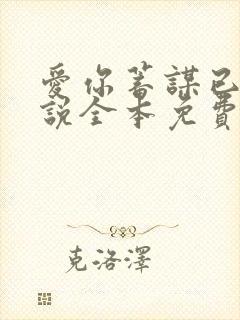 愛你蓄謀已
說全本免費
克洛澤